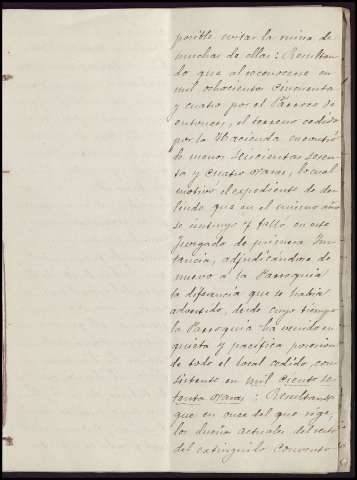 posible evitar la ruina de
muchas de ellas: Resultan
do que al reconocerse en
mil ochocientos cincuenta
y cuatro por el Párroco de
entonces, el terreno cedido
por la Hacienda encontró
de menos seiscientas sesen
ta y cuatro varas, lo cual
motivó el expediente de des
linde que en el mismo año
se instruyó y falló en este
Juzgado de primera Ins
tancia, adjudicándose de
nuevo á la Parroquia
la diferencia que se había
advertido, desde cuyo tiempo
la Parroquia ha venido en
quieta y pacífica posesion
de todo el local cedido, con
sistente en mil ciento se
tenta varas: Resultando
que en once del que rige,
los dueños actuales del resto
del extinguido convento